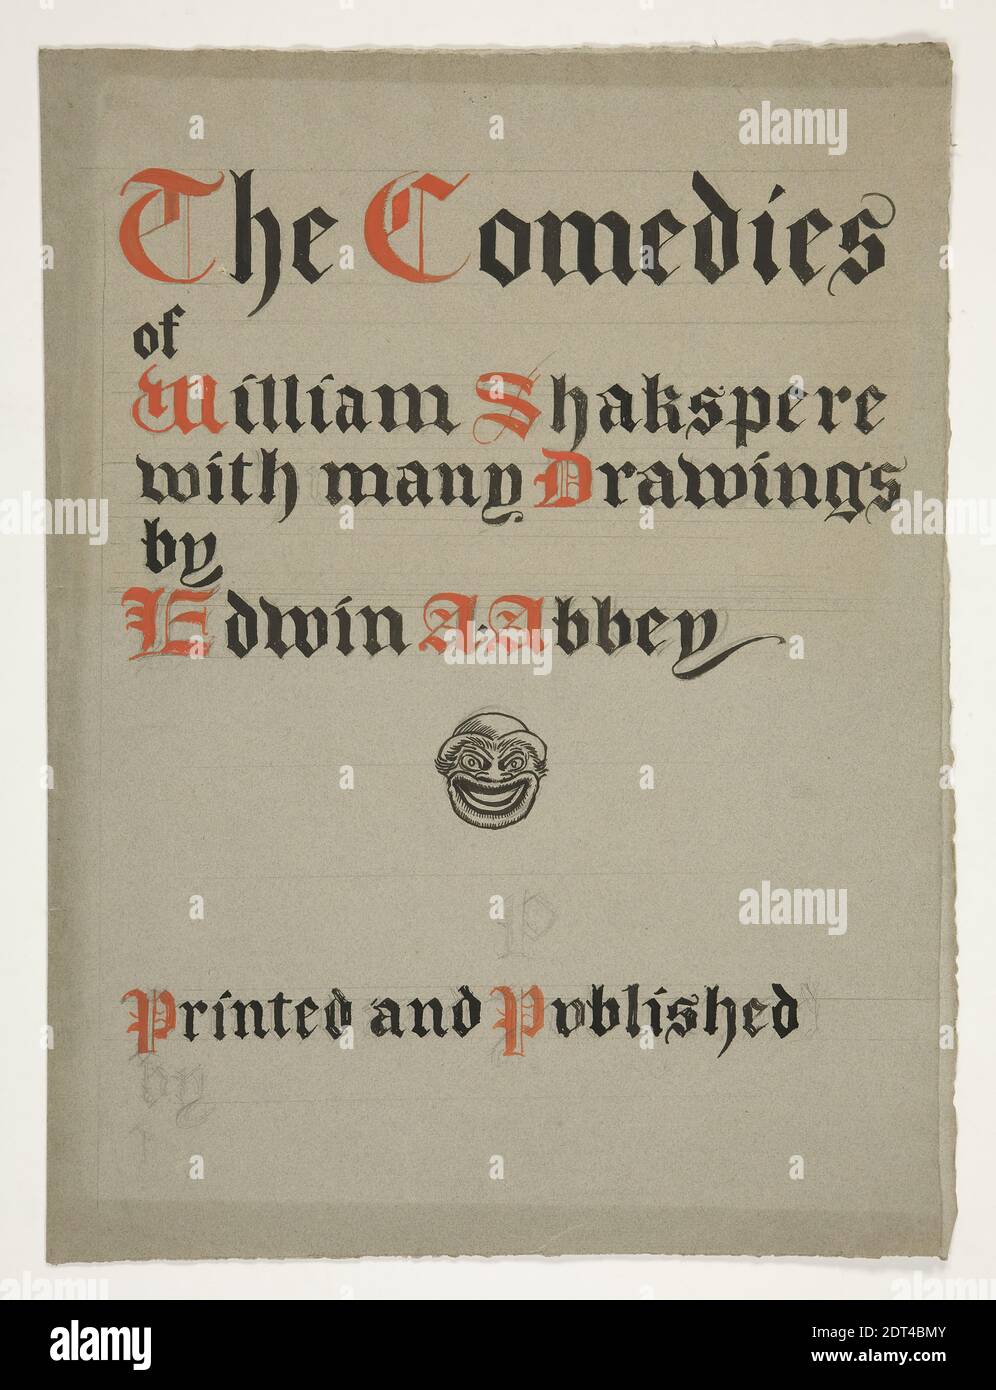 The Comedies
of
William Shakspere
with many Drawings
by
Edwin A. Abbey
P
Printed and Pvblished
by
alamy
Image ID: 2DT4BMY
www.alamy.com